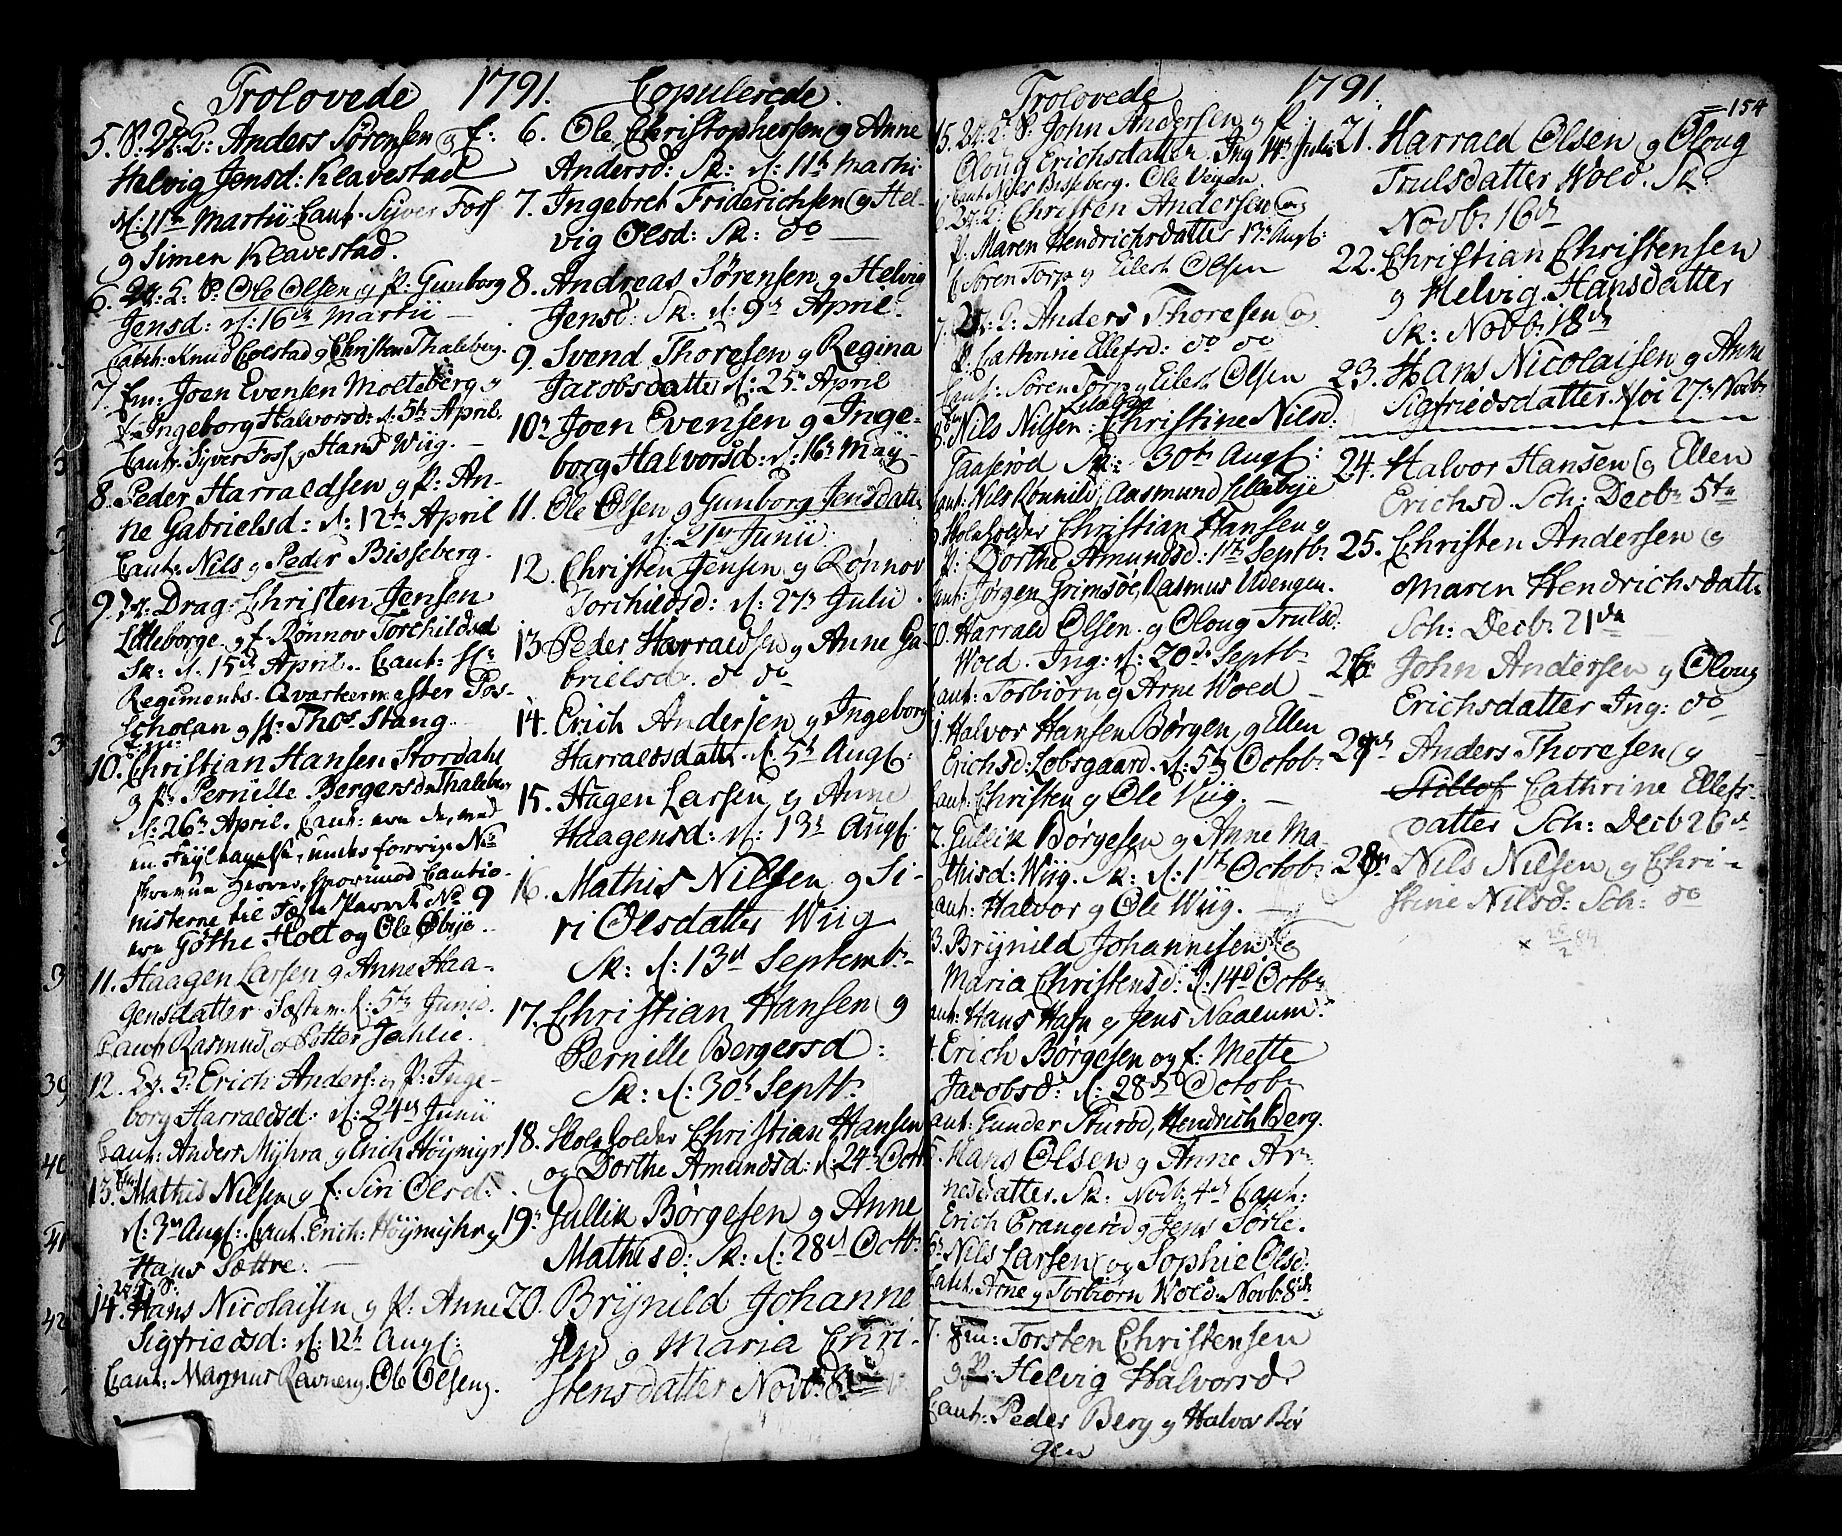 Trolovede 1791. Copulerede.
5. Anders Sørensen og f:
Helvig Jensd: Klavestad
d: 11te Martii Caut. Syver Foss
og Simen Klavestad.
6. Ole Olsen og P: Gunborg
Jensd: d: 16de Martii
Cauti: Knud Colstad og Christen Thaleberg.
7. Em: Joen Evensen Molteberg og
Ingeborg Halvorsd: d. 5te April.
Caut: Syver Foss og Hans Wiig.
8. Peder Harraldsen og P: An-
ne Gabrielsd: d: 12te April
Caut: Nils og Peder Bisseberg.
9. Drag: Christen Jensen
Lilleborge og f. Rønnov Torchildsd
Sk: d. 15de April. Caut: Hr:
Regiments-Qvarteermester Pos-
scholan og Hr: Thos Stang.
Em:
10. Christian Hansen Stordahl
og P: Pernille Bergersd Thaleberg
d: 26de April. Caut:
No
Cautio-
nisterne til No 9
Göthe Holt og Ole Øbye.
11. Haagen Larsen og Anne Haa-
gensdatter d: 5te Junii.
Caut Rasmus og Petter Jahlie.
12. Erich Anders: og P: Inge-
borg Harraldsd: d: 24de Junii
Caut: Anders Myhra og Erich Høymyr
13. Em Mathis Nilsen og f: Siri Olsd:
d: 3die Aug: Caut. Erich Høymyhr og
Hans Sættre.
14. Hans Nicolaisen og P: Anne
Sigfriedsd: d: 12te Aug:
Caut: Magnus Ravneng. Ole Olseng.
6. Ole Christophersen og Anne
Andersd: Sk: d: 11te Martii
7. Ingebret Friderichsen og Hel-
vig Olsd: Sk: do
8. Andreas Sørensen og Helvig
Jensd: Sk: d: 9de April.
9. Svend Thoresen og Regina
Jacobsdatter d: 25de April
10. Joen Evensen og Inge-
borg Halvorsd: d: 16de May
11. Ole Olsen og Gunborg Jensdatt:
d: 21de Junii
12. Christen Jensen og Rønnov
Torchildsd: d: 27de Julii.
13. Peder Harraldsen og Anne Ga-
brielsd. do do
14. Erich Andersen og Ingeborg
Harraldsdatt. d: 5te Aug:
15. Hagen Larsen og Anne
Haagensd: d: 13de Aug:
16. Mathis Nilsen og Si-
ri Olsdatter Wiig
Sk: d: 13de Septembr.
17. Christian Hansen og
Pernille Bergersd:
Sk: d: 30te Septbr.
18. Skoleholder Christian Hansen
og Dorthe Amundsd: d: 24de Octb
19. Gullik Børgesen og Anne
Mathisd: Sk: d: 28de Octb:
20. Brynild Johanne
sen og Maria Chri-
stensdatter Novb: 8de
Trolovede 1791. 154
15. John Andersen og P:
Oloug Erichsdatter. Ing 14de Julii
Caut Nils Bisseberg. Ole Vejen.
Christen Andersen og
P: Maren Hendrichsdatter 13de Aug:
C Søren Torp og Eilert Olsen
7. Anders Thoresen og
P: Cathrine Ellefsd: do do
Caut: Søren Torp og Eilert Olsen
8. Nils Nilsen Christine Nilsd:
Gaaserød Sk: 30te Aug:
Caut: Nils Rønnild, Aasmund Lillebye
Skoleholder Christian Hansen og
P: Dorthe Amundsd: 1te Septbr.
Caut: Jørgen Grimsøe, Rasmus Udengen.
20. Harrald Olsen og Oloug Trulsd:
Woed. Ing: d: 20de Septbr.
Caut: Torbiørn og Arne Woed
1. Halvor Hansen Børgen, og Ellen
Erichsd: Lobsgaard. d: 5te Octobr
Caut: Christen og Ole Viig.
2. Gullik Børgesen og Anne Ma-
thisd: Wiig. Sk: d: 1te Octobr
Caut: Halvor og Ole Wiig.
3. Brynild Johannisen og
Maria Christensd: d: 14de Octbr
Caut: Hans Hafn og Jens Naalum.
4. Erich Børgesen og f: Mette
Jacobsd: d: 28de Octobr
Caut: Gunder Sturød, Hendrich Berg.
5. Hans Olsen og Anne Ar-
nesdatter. Sk: Novb: 4de Caut:
Erich Prangerød og Jens Sørle.
6. Nils Larsen og Sophie Olsd:
Caut: Arne og Torbiørn Wold. Novb: 8de
7. Em: Torsten Christensen
og P: Helvig Halvorsd
Caut: Peder Berg og Halvor Bør
gen
21. Harrald Olsen og Oloug
Trulsdatter Woed. Sk:
Novb: 16de
22. Christian Christensen
og Helvig Hansdatter
Sk: Novb: 18de
23. Hans Nicolaisen og Anne
Sigfriedsdatter. 27de Novb:
24. Halvor Hansen og Ellen
Erichsd. Sch: Decbr 5te
25. Christen Andersen og
Maren Hendrichsdatt:
Sch: Decb: 21de
26. John Andersen og Oloug
Erichsdatter Ing: do
27. Anders Thoresen og
Cathrine Ellefs-
datter Sch: Decb 26de
28. Nils Nilsen, og Chri-
stine Nilsd: Sch: do